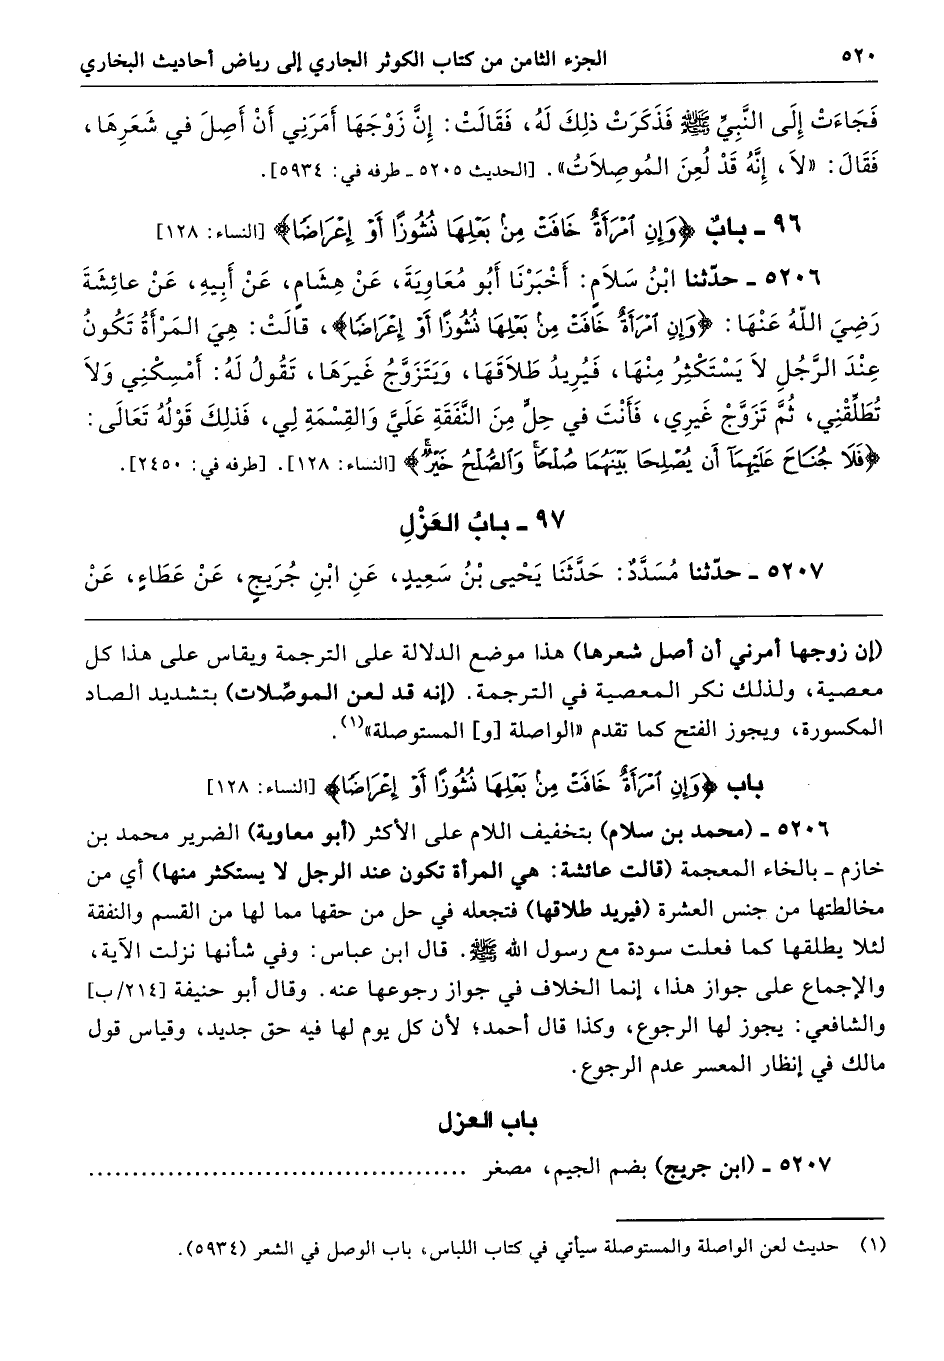 ٥٢٠ الجزء الثامن من كتاب الكوثر الجاري إلى رياض أحاديث البخاري
فَجَاءَتْ إِلَى النَّبِيِّ ﷺ فَذَكَرَتْ ذلِكَ لَهُ، فَقَالَتْ: إِنَّ زَوْجَهَا أَمَرَنِي أَنْ أَصِلَ في شَعَرِهَا،
فَقَالَ: «لاَ، إِنَّهُ قَدْ لُعِنَ المُوصِلاَتُ». [الحديث ٥٢٠٥ ـ طرفه في: ٥٩٣٤].
٩٦ ـ بابٌ ﴿وَإِنِ ٱمْرَأَةٌ خَافَتْ مِنۢ بَعْلِهَا نُشُوزًا أَوْ إِعْرَاضًا﴾ [النساء: ١٢٨]
٥٢٠٦ ـ حدّثنا ابْنُ سَلاَمٍ: أَخْبَرَنَا أَبُو مُعَاوِيَةَ، عَنْ هِشَامٍ، عَنْ أَبِيهِ، عَنْ عائِشَةَ
رَضِيَ اللّهُ عَنْهَا: ﴿وَإِنِ ٱمْرَأَةٌ خَافَتْ مِنۢ بَعْلِهَا نُشُوزًا أَوْ إِعْرَاضًا﴾، قالَتْ: هِيَ المَرْأَةُ تَكُونُ
عِنْدَ الرَّجُلِ لاَ يَسْتَكْثِرُ مِنْهَا، فَيُرِيدُ طَلاَقَهَا، وَيَتَزَوَّجُ غَيرَهَا، تَقُولُ لَهُ: أَمْسِكْنِي وَلاَ
تُطَلِّقْنِي، ثُمَّ تَزَوَّجْ غَيرِي، فَأَنْتَ في حِلٍّ مِنَ النَّفَقَةِ عَلَيَّ وَالقِسْمَةِ لِي، فَذلِكَ قَوْلُهُ تَعَالَى:
﴿فَلَا جُنَاحَ عَلَيْهِمَآ أَن يُصْلِحَا بَيْنَهُمَا صُلْحًا ۚ وَٱلصُّلْحُ خَيْرٌ ۗ﴾ [النساء: ١٢٨]. [طرفه في: ٢٤٥٠].
٩٧ ـ بابُ العَزْلِ
٥٢٠٧ ـ حدّثنا مُسَدَّدٌ: حَدَّثَنَا يَحْيى بْنُ سَعِيدٍ، عَنِ ابْنِ جُرَيجٍ، عَنْ عَطَاءٍ، عَنْ
(إن زوجها أمرني أن أصل شعرها) هذا موضع الدلالة على الترجمة ويقاس على هذا كل
معصية، ولذلك نكر المعصية في الترجمة. (إنه قد لعن الموصّلات) بتشديد الصاد
المكسورة، ويجوز الفتح كما تقدم «الواصلة [و] المستوصلة»(١).
باب ﴿وَإِنِ ٱمْرَأَةٌ خَافَتْ مِنۢ بَعْلِهَا نُشُوزًا أَوْ إِعْرَاضًا﴾ [النساء: ١٢٨]
٥٢٠٦ ـ (محمد بن سلام) بتخفيف اللام على الأكثر (أبو معاوية) الضرير محمد بن
خازم ـ بالخاء المعجمة (قالت عائشة: هي المرأة تكون عند الرجل لا يستكثر منها) أي من
مخالطتها من جنس العشرة (فيريد طلاقها) فتجعله في حل من حقها مما لها من القسم والنفقة
لئلا يطلقها كما فعلت سودة مع رسول الله ﷺ. قال ابن عباس: وفي شأنها نزلت الآية،
والإجماع على جواز هذا، إنما الخلاف في جواز رجوعها عنه. وقال أبو حنيفة [٢١٤/ب]
والشافعي: يجوز لها الرجوع، وكذا قال أحمد؛ لأن كل يوم لها فيه حق جديد، وقياس قول
مالك في إنظار المعسر عدم الرجوع.
باب العزل
٥٢٠٧ ـ (ابن جريج) بضم الجيم، مصغر ...........................................
(١) حديث لعن الواصلة والمستوصلة سيأتي في كتاب اللباس، باب الوصل في الشعر (٥٩٣٤).